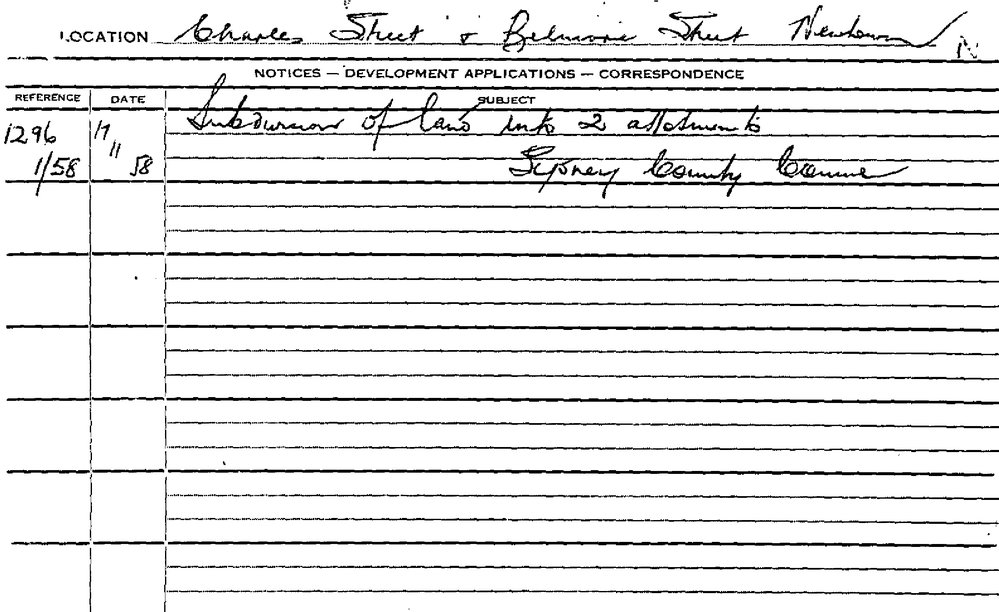 LOCATION Charles Street & Belmore Street Newtown
NOTICES — DEVELOPMENT APPLICATIONS — CORRESPONDENCE
REFERENCE DATE SUBJECT
1296 17 Subdivision of land into 2 allotments
11
1/58 58 Sydney County Council